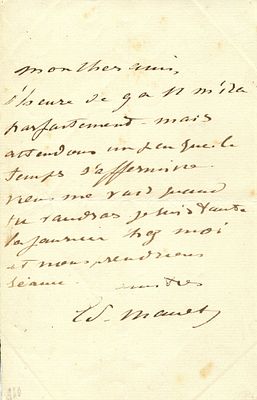 mon cher ami,
l'heure de 9 à 11 m'ira
parfaitement - mais
attendons un peu que le
temps s'affermisse.
viens me voir quand
tu voudras je suis toute
la journée chez moi
et nous prendrons
séance.
Ed. Manet